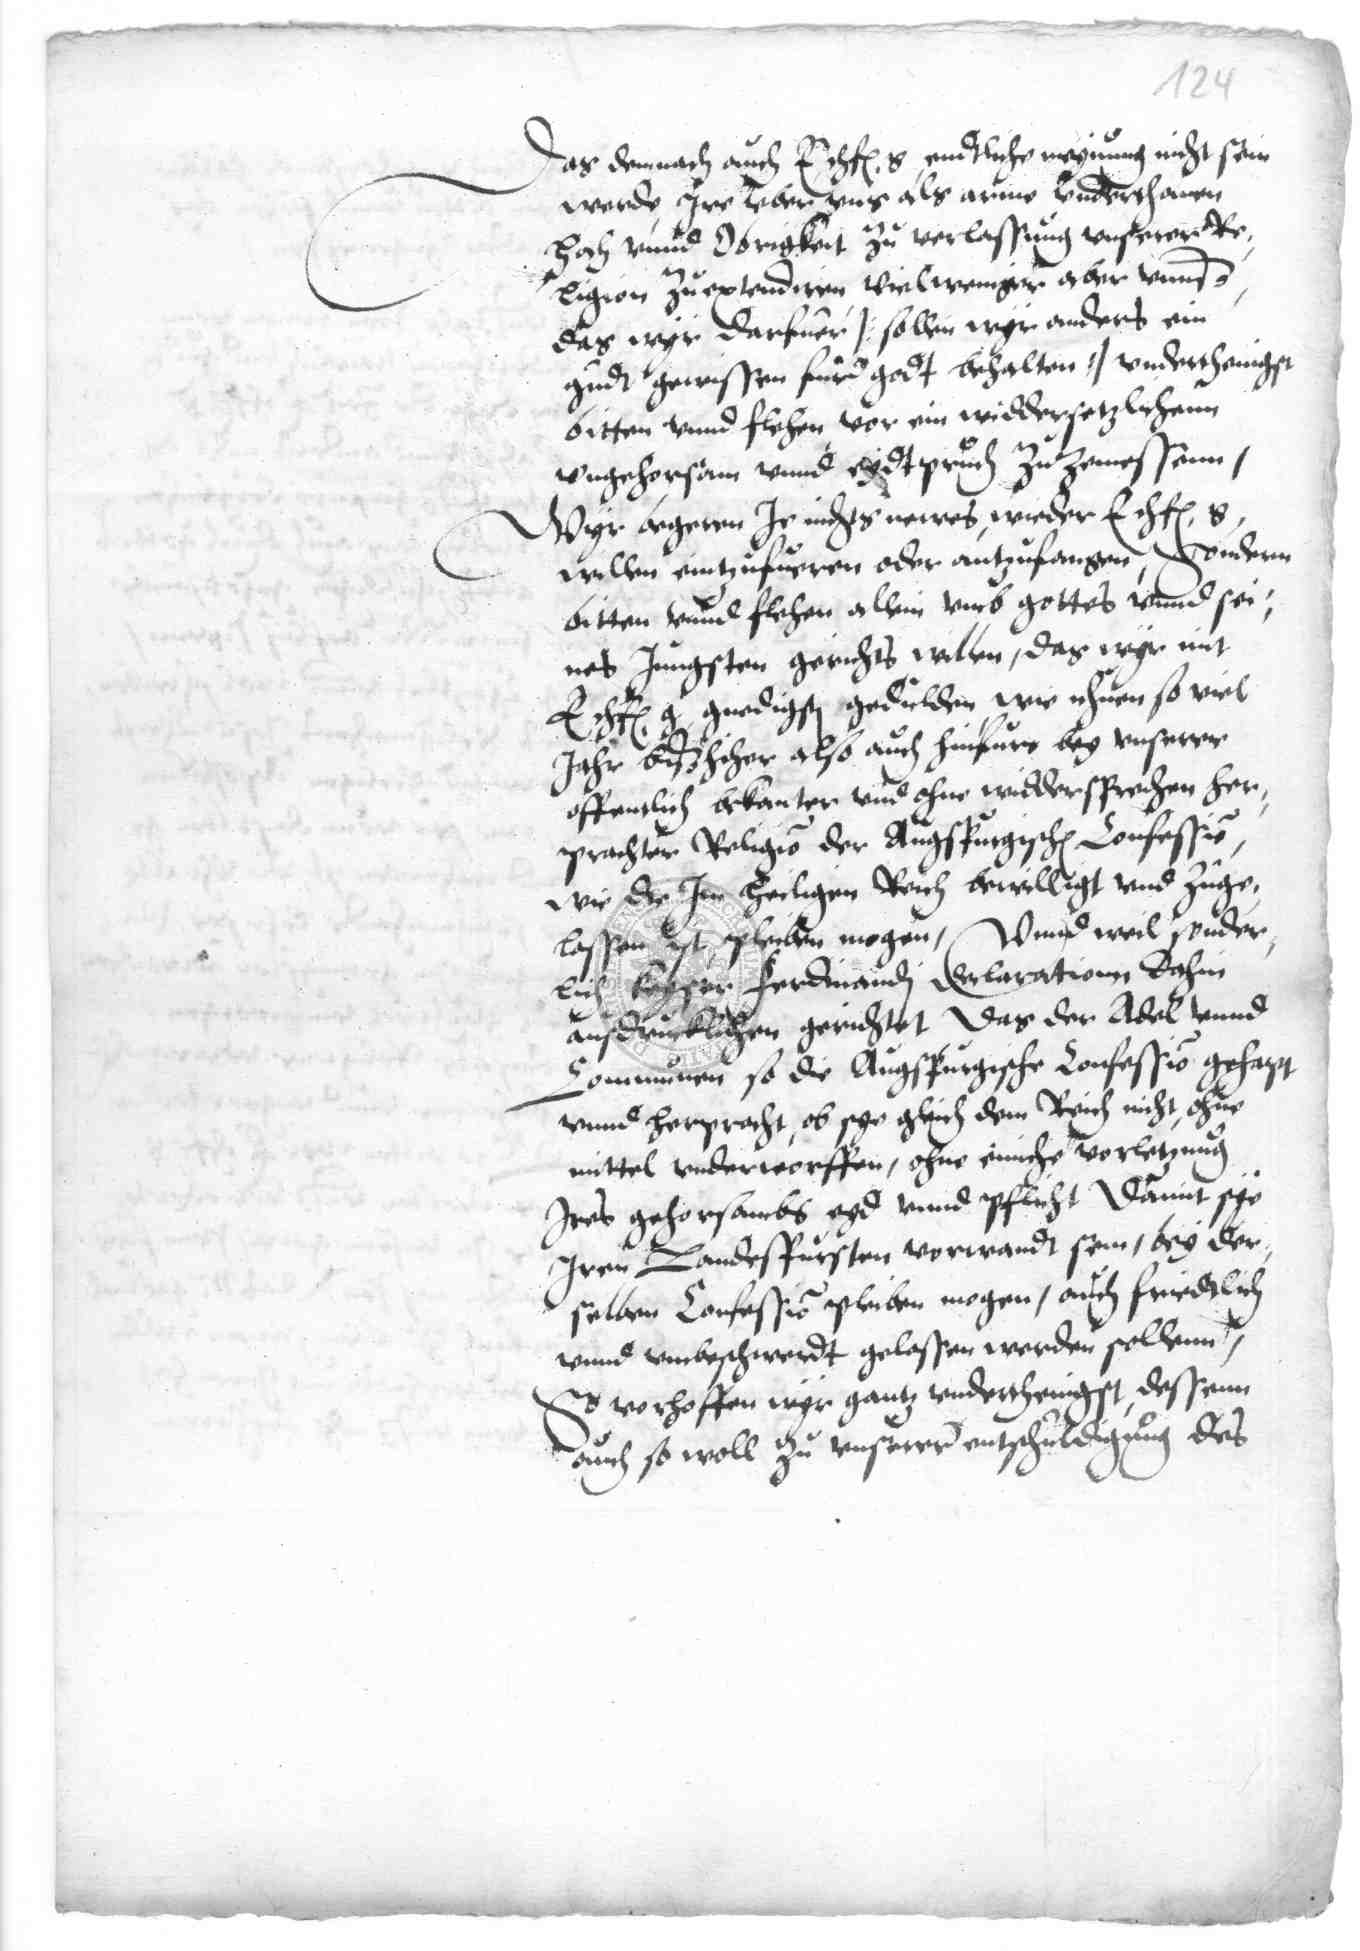 124
Das demnach auch E chf. g. endtliche meynung nicht sein
werde, Ire vber vns als arme vnderthanen
Hoch vnnd Obrigkeit zu verlassung vnserer Re,
ligion zu extendiren, viel weniger aber vnnß,
das wyr darfuer /: sollen wyr anders ein
gudt gewissen fur godt behalten :/ vnderthenigst
bitten vnnd flehen vor ein widdersetzlichenn
vngehorsam vnnd eydtpruch zu zemessenn,
Wyr begeren Je nichts newes, wieder E chf. g.
willen eintzufueren oder antzufangen, Sondern
bitten vnnd flehen allein vmb gottes vnnd sei,
nes Jungsten gerichts willen, das wyr mit
E chf. g. gnedigst gedulden wie ihnen so viel
Jahr bißhiher also auch hinfuro bey vnserer
offentlich bekanter vnd ohne widdersprechen her,
prachter Religio der Augspurgisch Confessio,
wie die Im heiligen Reich bewilligt vnd zuge,
lassen ist, pleiben mogen, Vnnd weil sonder,
lich keyser Ferdinandj declaration dahin
ausdrucklichen gerichtet Das der Adel vnnd
Communen so die Augspurgische Confessio gehapt
vnnd herpracht, ob sye gleich dem Reich nicht, ohne
mittel vnderworffen, ohne einiche vorletzung
Ires gehorsambs eyd vnnd pflicht Damit sye
Iren Landesfursten vorwandt sein, bey der,
selben Confessio pleiben mogen, auch friedtlich
vnnd vnbeschwerdt gelassen werden soldenn,
So vorhoffen wyr gantz vnderthenigst, dessenn
auch so woll zu vnserer entschuldigung des